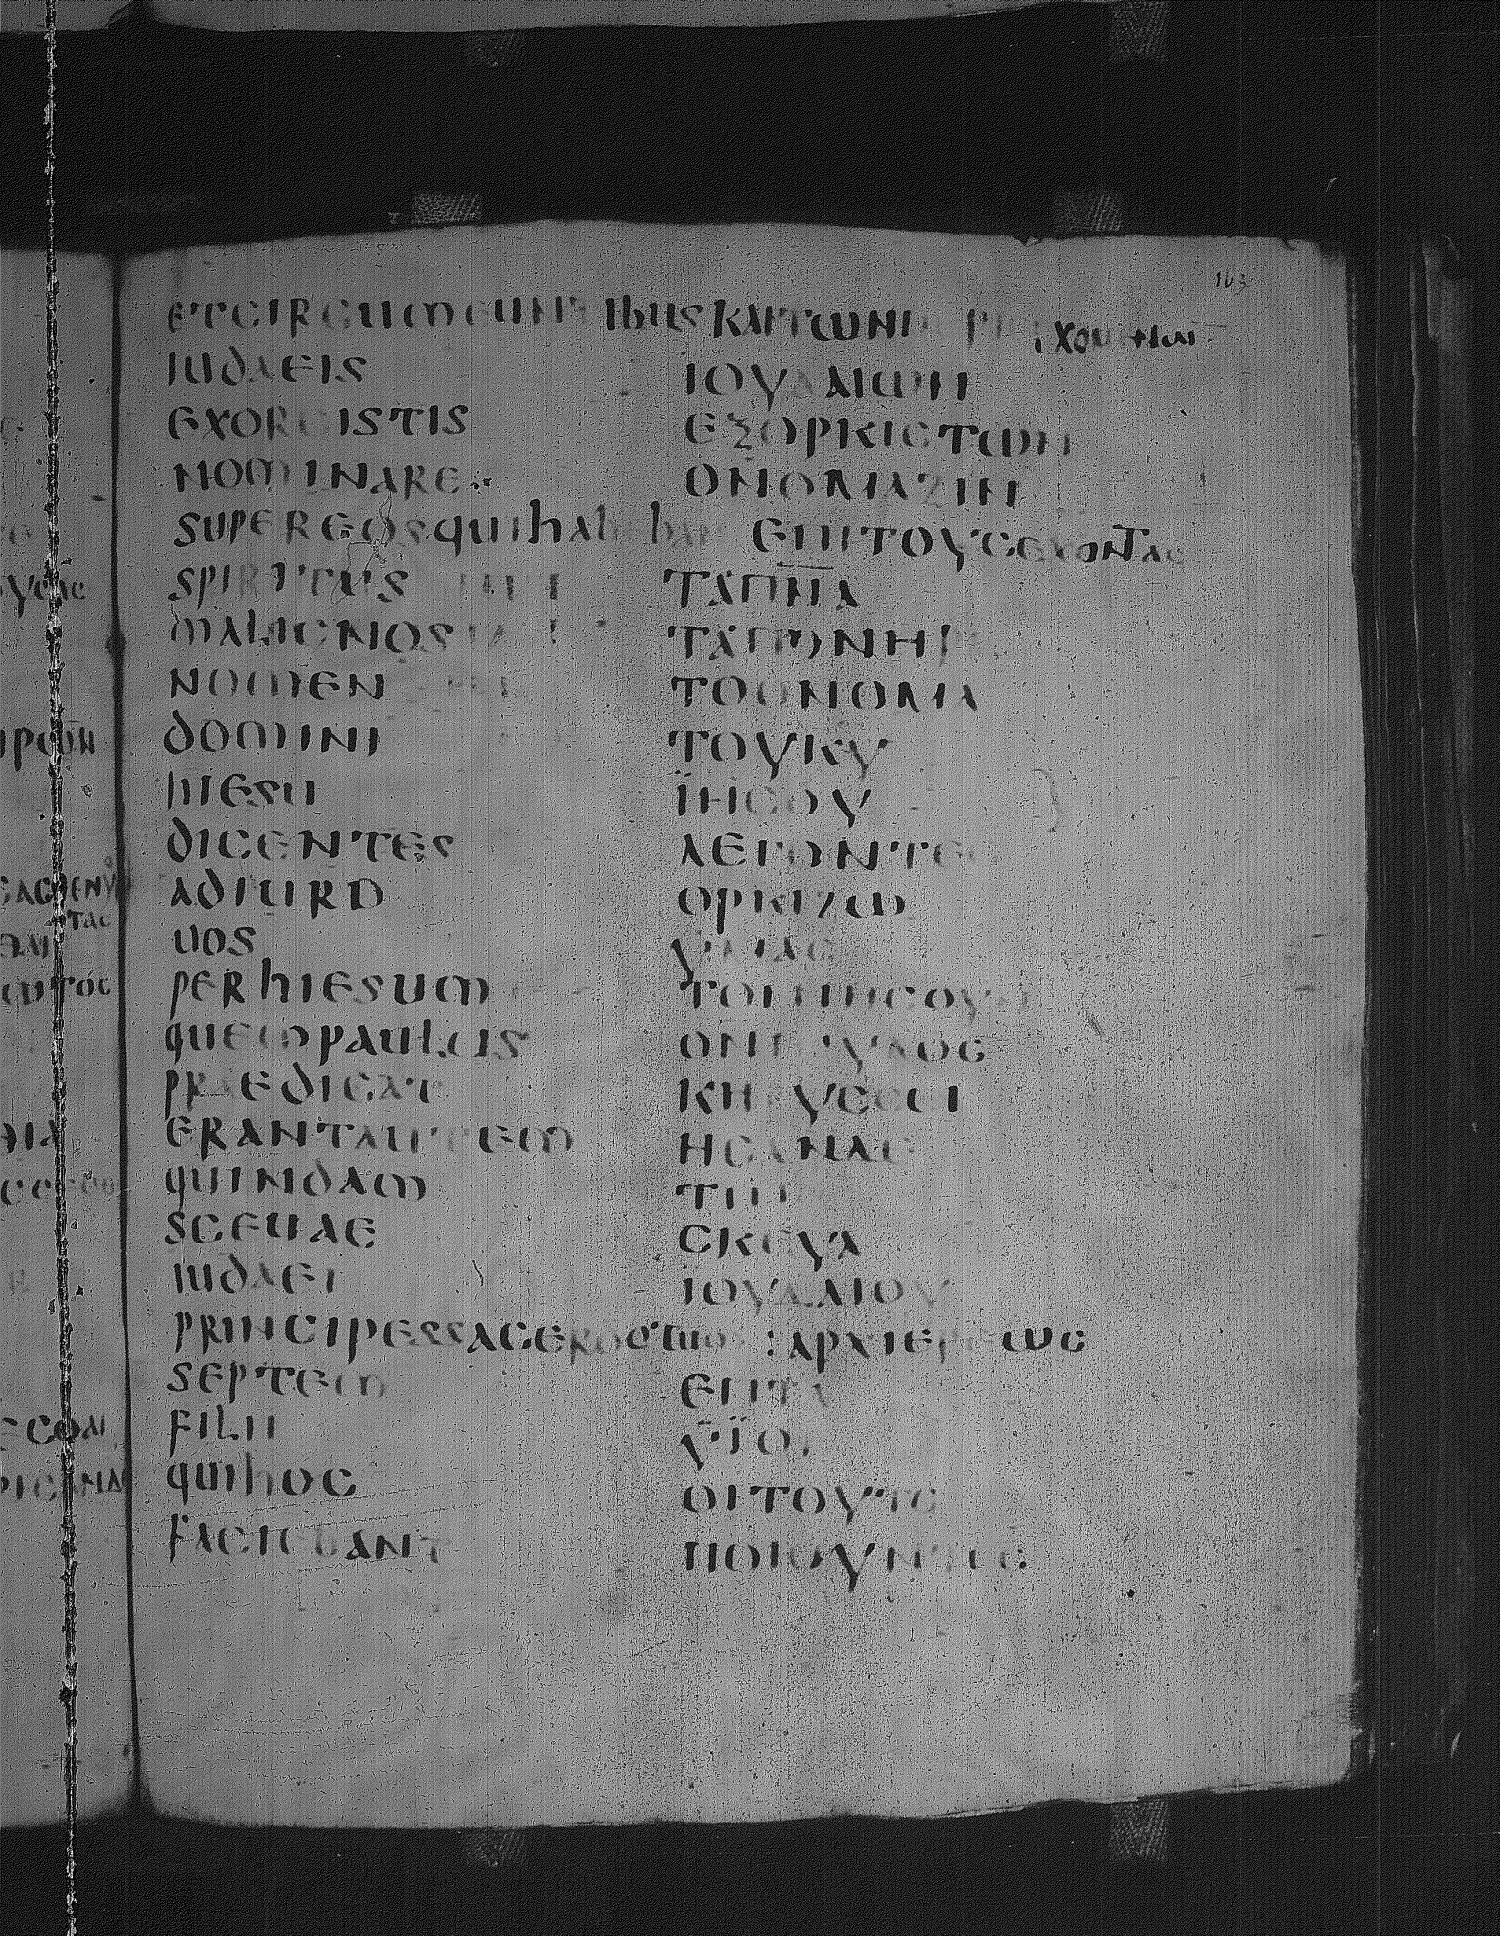 103
ETCIRCUMEUNTIBUS ΚΑΙΤΩΝ
IUDAEIS ΙΟΥΔΑΙΩΝ
EXORCISTIS ΕΞΟΡΚΙСΤΩΝ
NOMINARE ΟΝΟΜΑΖΙΝ
SUPEREOSQUIHABEBANT ΕΠΙΤΟΥСΕΧΟΝΤΑС
SPIRITUS ΤΑΠΝΑ
MALIGNOS ΤΑΠΟΝΗΡΑ
NOMEN ΤΟΟΝΟΜΑ
DOMINI ΤΟΥΚΥ
HIESU ΪΗСΟΥ
DICENTES ΛΕΓΟΝΤΕС
ADIURO ΟΡΚΙΖΩ
UOS ΥΜΑС
PERHIESUM ΤΟΝΙΗСΟΥΝ
QUEMPAULUS ΟΝΠΑΥΛΟС
PRAEDICAT ΚΗΡΥССΕΙ
ERANTAUTEM ΗСΑΝΔΕ
QUINDAM
SCEUAE СΚΕΥΑ
IUDAEI ΙΟΥΔΑΙΟΥ
PRINCIPESSACERDOTUM ΑΡΧΙΕΡΕΩС
SEPTEM ΕΠΤΑ
FILII ΥΪΟΙ
QUIHOC ΟΙΤΟΥΤΟ
FACIEBANT ΠΟΙΟΥΝΤΕС